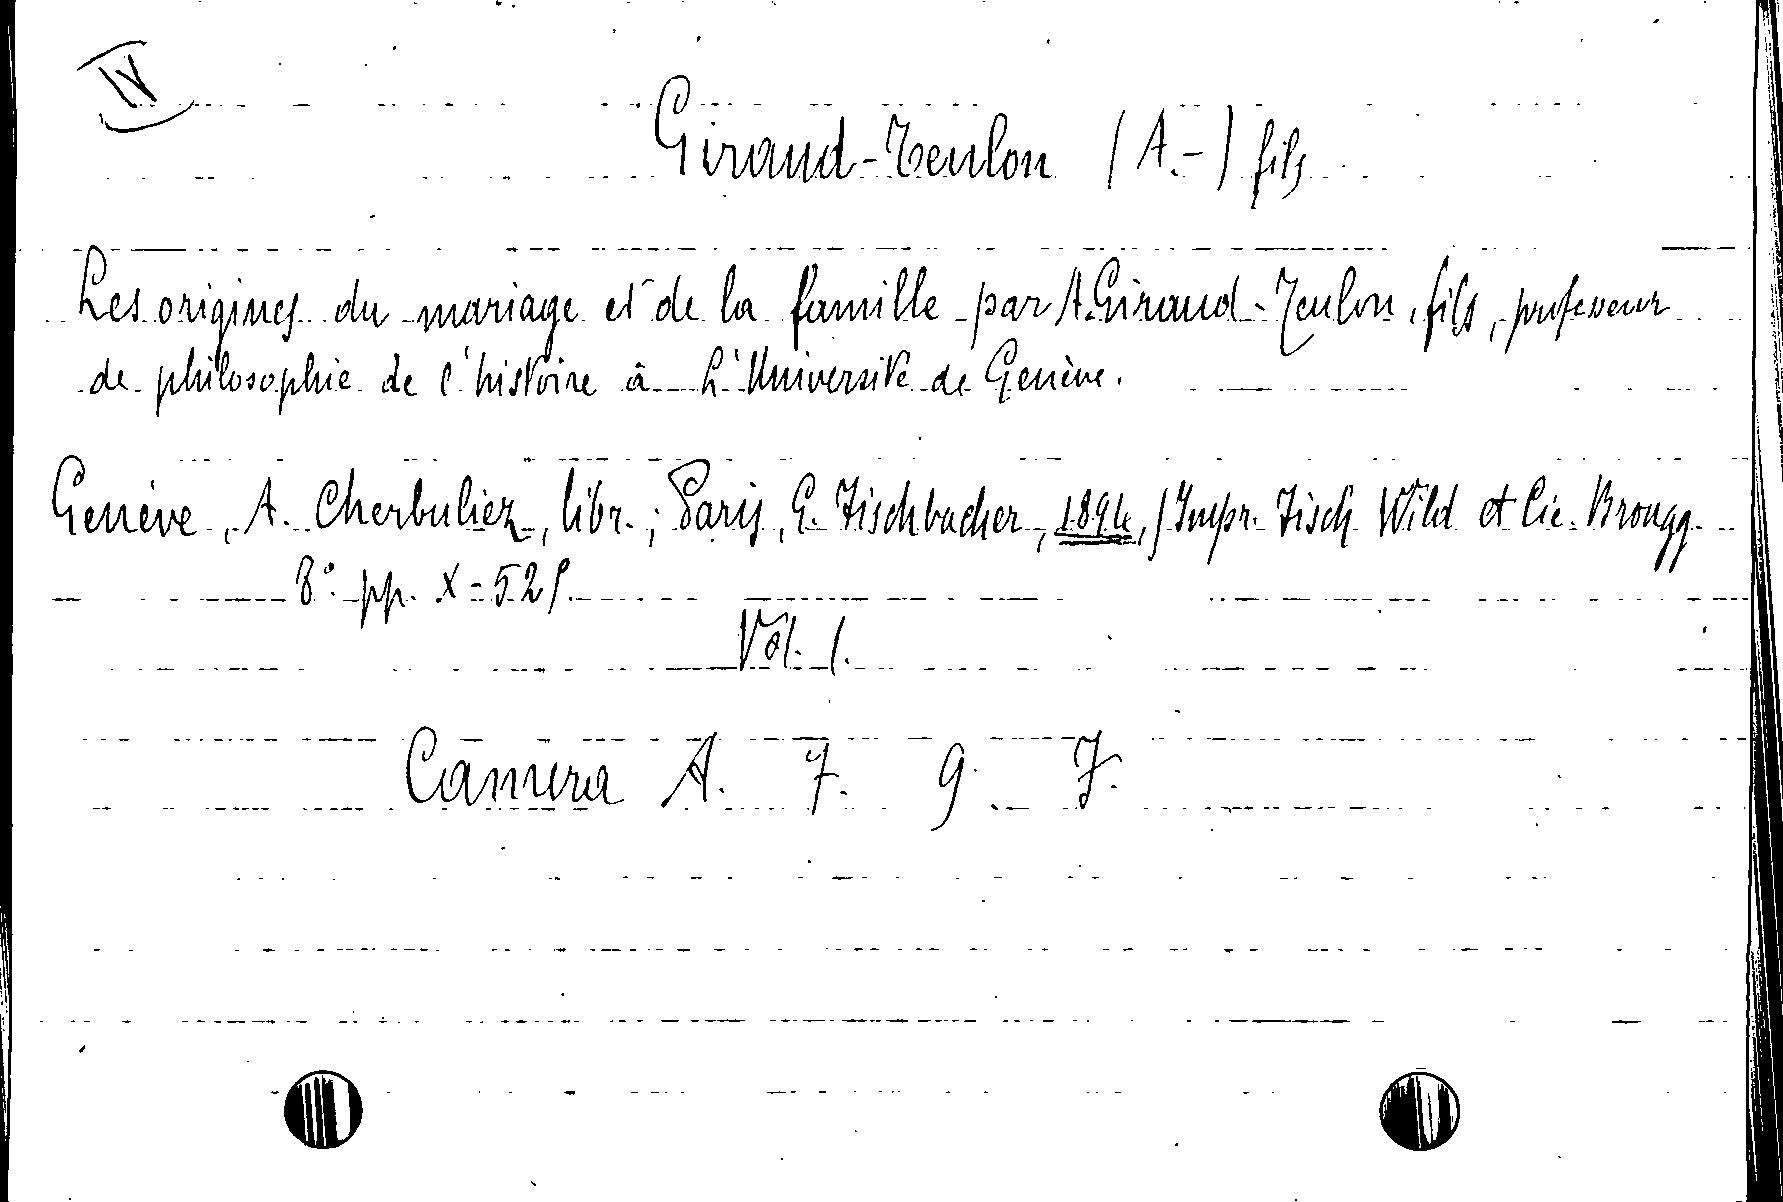 IV
Giraud-Teulon (A.-) fils
Les origines du mariage et de la famille par A. Giraud-Teulon, fils, professeur
de philosophie de l'histoire à L'Université de Genève.
Genève, A. Cherbuliez, libr.; Paris, G. Fischbacher, 1894, (Impr. Fisch Wild et Cie. Brougg.
8° pp. X-525.
Vol. 1.
Camera A. 7. 9. 7.